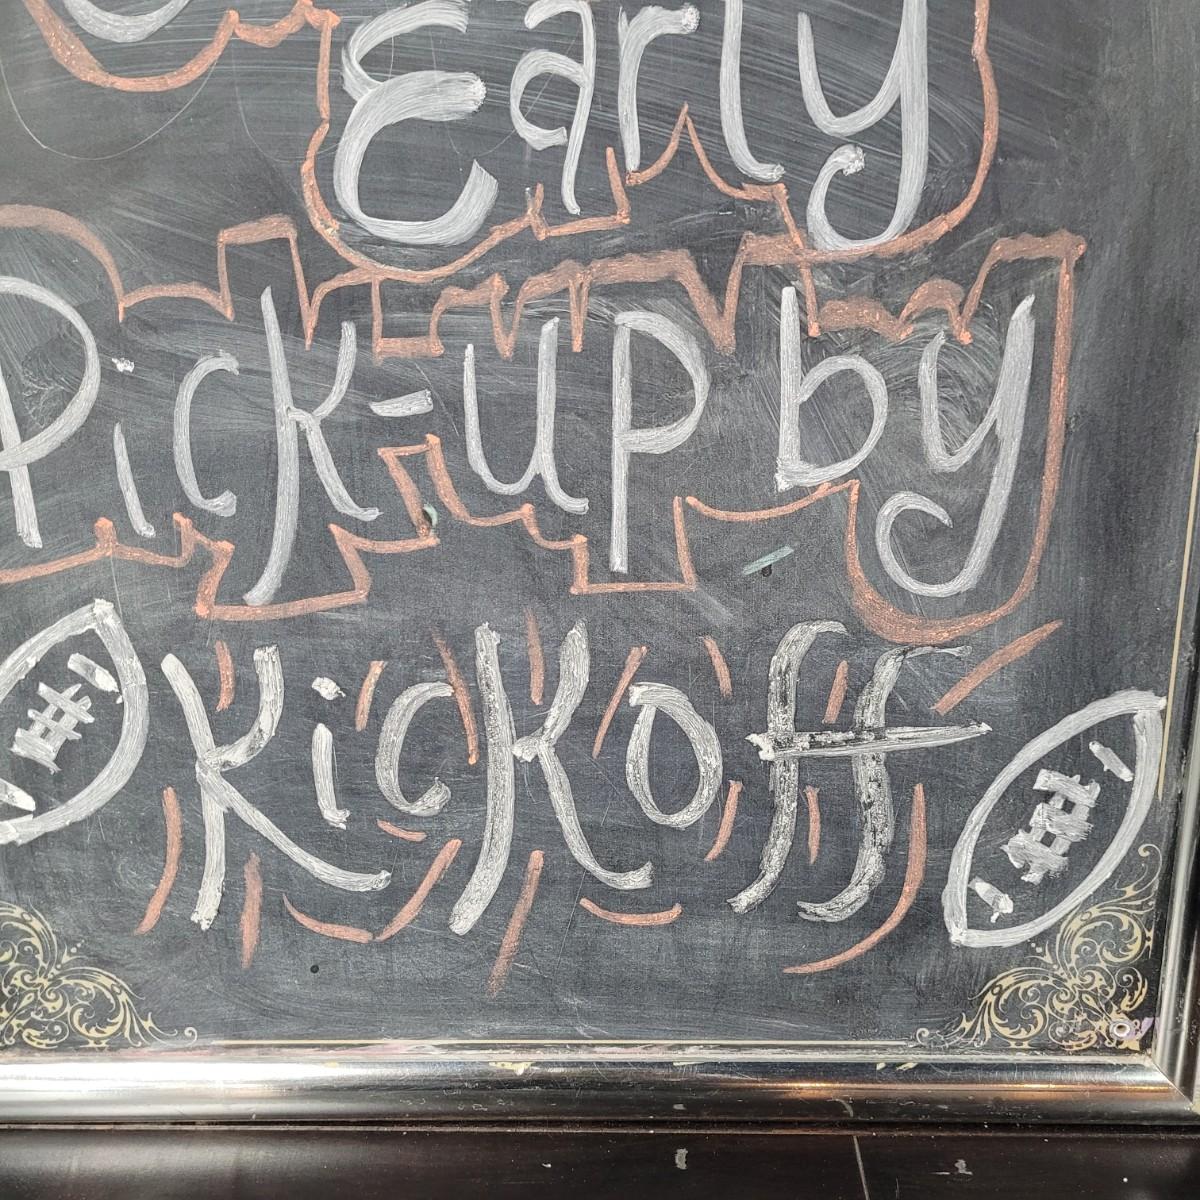 Early
Pick-up by
Kickoff